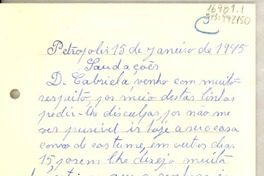 16981.1
992150
Petropolis 15 de janeiro de 1945
Saudações
D. Gabriela, venho com muito
respeito, por meio destas linhas
pedir-lhe disculpas por não me
ser pucivel ir hoje a sua casa
como de costume, em outros dias
15 porem lhe desejo muita